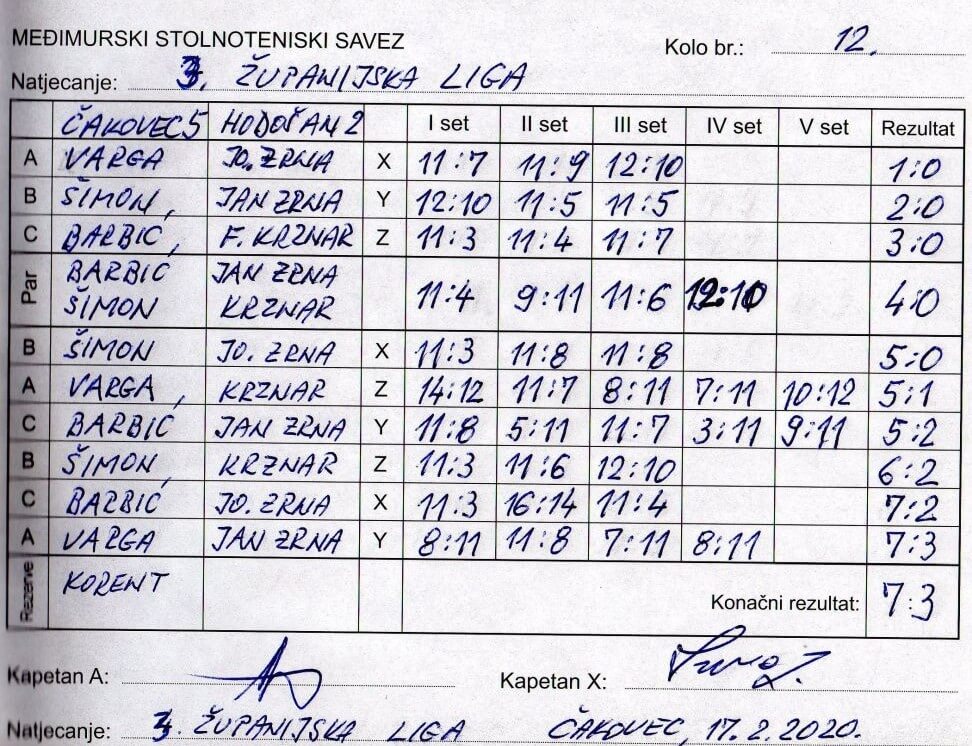 MEĐIMURSKI STOLNOTENISKI SAVEZ
Kolo br.: 12.
Natjecanje: 3. ŽUPANIJSKA LIGA
ČAKOVEC 5 HODOŠAN 2 I set II set III set IV set V set Rezultat
A VARGA JO. ZRNA X 11:7 11:9 12:10 1:0
B ŠIMON, JAN ZRNA Y 12:10 11:5 11:5 2:0
C BARBIĆ, F. KRZNAR Z 11:3 11:4 11:7 3:0
Par BARBIĆ JAN ZRNA
ŠIMON KRZNAR 11:4 9:11 11:6 12:10 4:0
B ŠIMON JO. ZRNA X 11:3 11:8 11:8 5:0
A VARGA, KRZNAR Z 14:12 11:7 8:11 7:11 10:12 5:1
C BARBIĆ JAN ZRNA Y 11:8 5:11 11:7 3:11 9:11 5:2
B ŠIMON, KRZNAR Z 11:3 11:6 12:10 6:2
C BARBIĆ JO. ZRNA X 11:3 16:14 11:4 7:2
A VARGA JAN ZRNA Y 8:11 11:8 7:11 8:11 7:3
Rezerve KORENT Konačni rezultat: 7:3
Kapetan A: Kapetan X:
Natjecanje: 3. ŽUPANIJSKA LIGA ČAKOVEC, 17.2.2020.